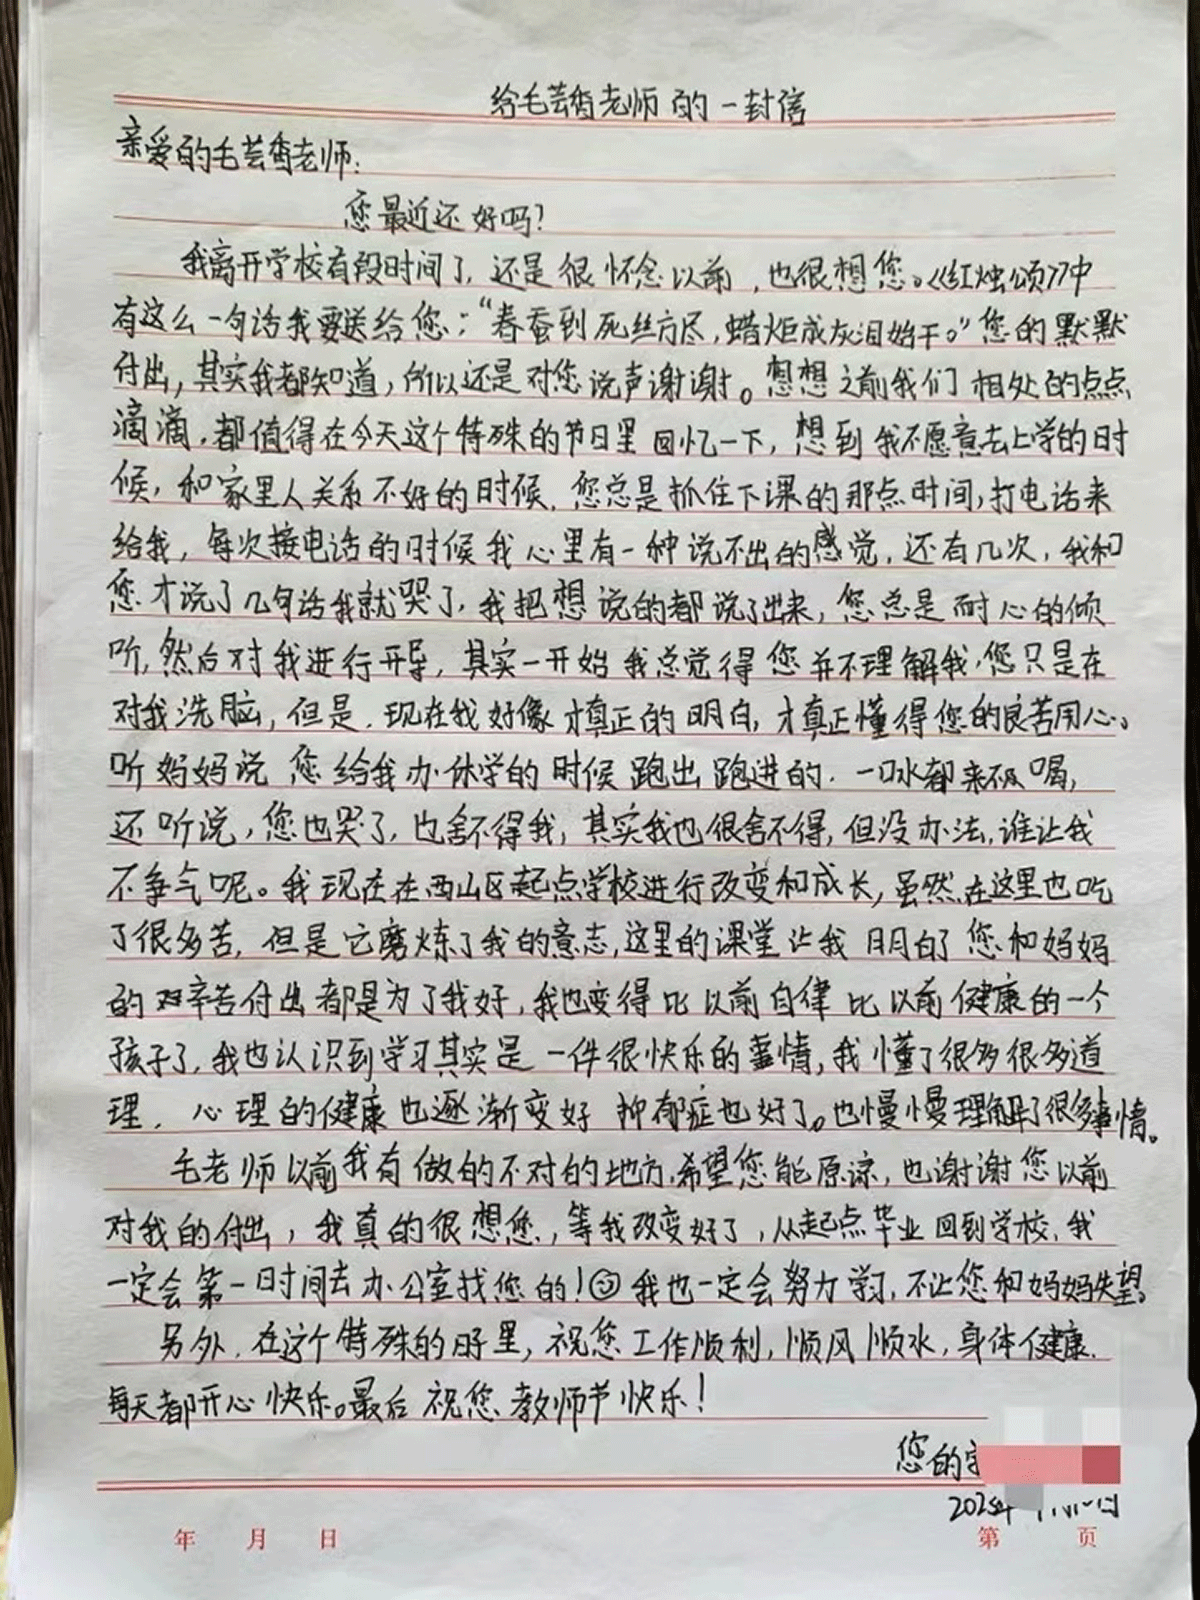 给毛芸香老师的一封信
亲爱的毛芸香老师:
您最近还好吗?
我离开学校有段时间了,还是很怀念以前,也很想您。《红烛颂》中
有这么一句话我要送给您:“春蚕到死丝方尽,蜡炬成灰泪始干。”您的默默
付出,其实我都知道,所以还是对您说声谢谢。想想之前我们相处的点点
滴滴,都值得在今天这个特殊的节日里回忆一下,想到我不愿意去上学的时
候,和家里人关系不好的时候,您总是抓住下课的那点时间,打电话来
给我,每次接电话的时候我心里有一种说不出的感觉,还有几次,我和
您才说了几句话我就哭了,我把想说的都说了出来,您总是耐心的倾
听,然后对我进行开导,其实一开始我总觉得您并不理解我,您只是在
对我洗脑,但是,现在我好像才真正的明白,才真正懂得您的良苦用心。
听妈妈说您给我办休学的时候跑出跑进的,一口水都来不及喝,
还听说,您也哭了,也舍不得我,其实我也很舍不得,但没办法,谁让我
不争气呢。我现在在西山区起点学校进行改变和成长,虽然在这里也吃
了很多苦,但是它磨炼了我的意志,这里的课堂让我明白了您和妈妈
的艰辛苦付出都是为了我好,我也变得比以前自律比以前健康的一个
孩子了,我也认识到学习其实是一件很快乐的事情,我懂了很多很多道
理,心理的健康也逐渐变好抑郁症也好了。也慢慢理解了很多事情。
毛老师以前我有做的不对的地方,希望您能原谅,也谢谢您以前
对我的付出,我真的很想您,等我改变好了,从起点毕业回到学校,我
一定会第一时间去办公室找您的!我也一定会努力学习,不让您和妈妈失望。
另外,在这个特殊的日子里,祝您工作顺利,顺风顺水,身体健康,
每天都开心快乐。最后祝您教师节快乐!
您的
年 月 日
第 页